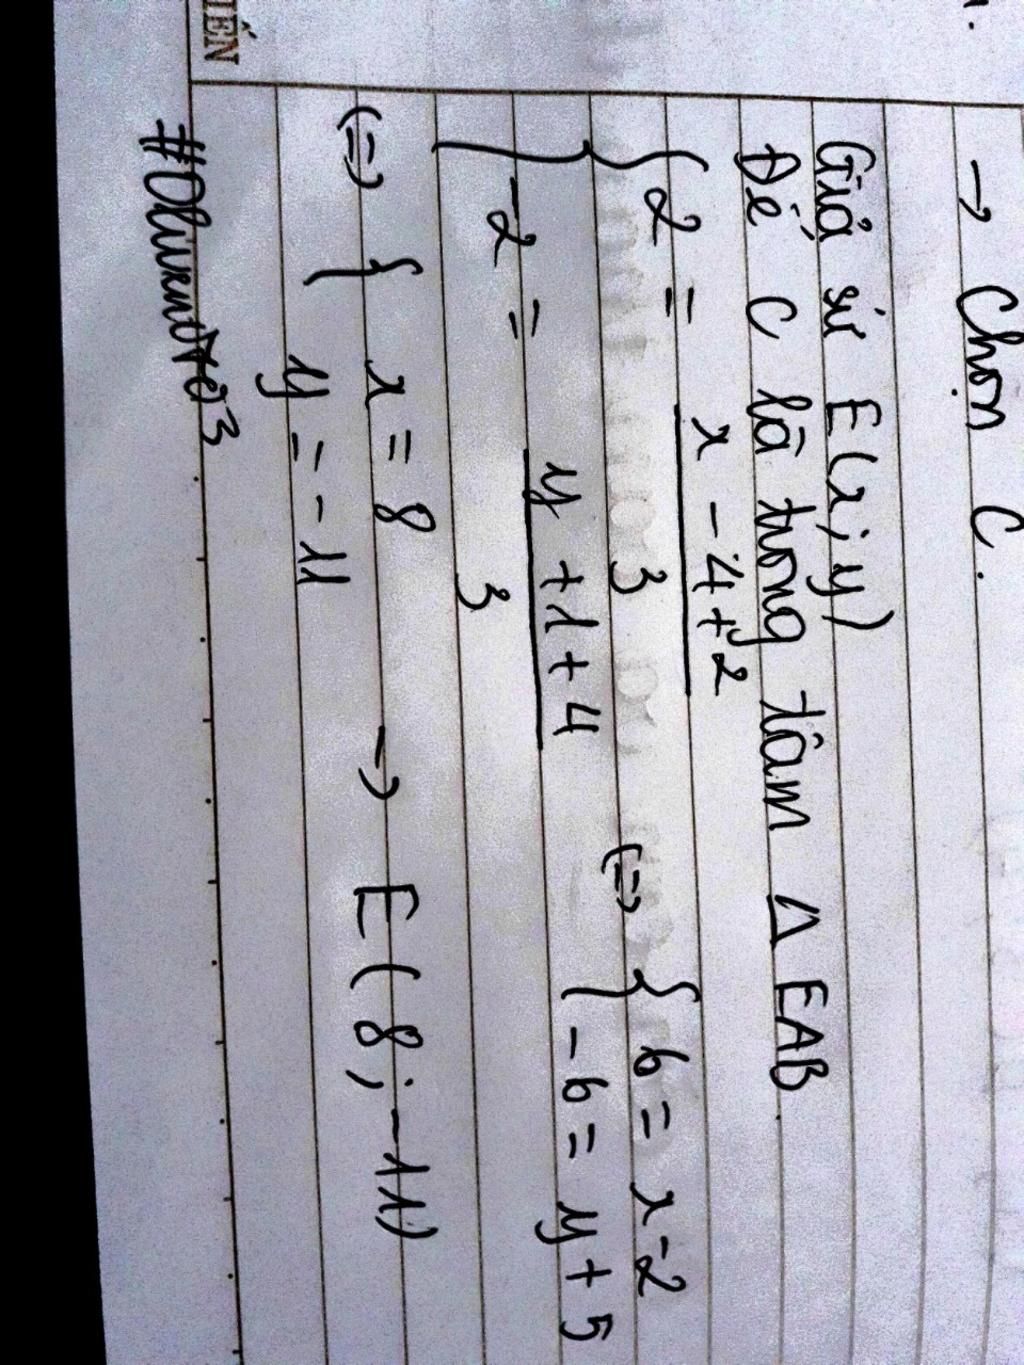 → Chọn C.
Giả sử E(x;y)
Để C là trọng tâm Δ EAB
{ 2 = x - 4 + 2 / 3
-2 = y + 1 + 4 / 3
(=) { 6 = x - 2
-6 = y + 5
(=) { x = 8
y = -11
→ E(8; -11)
IẾN